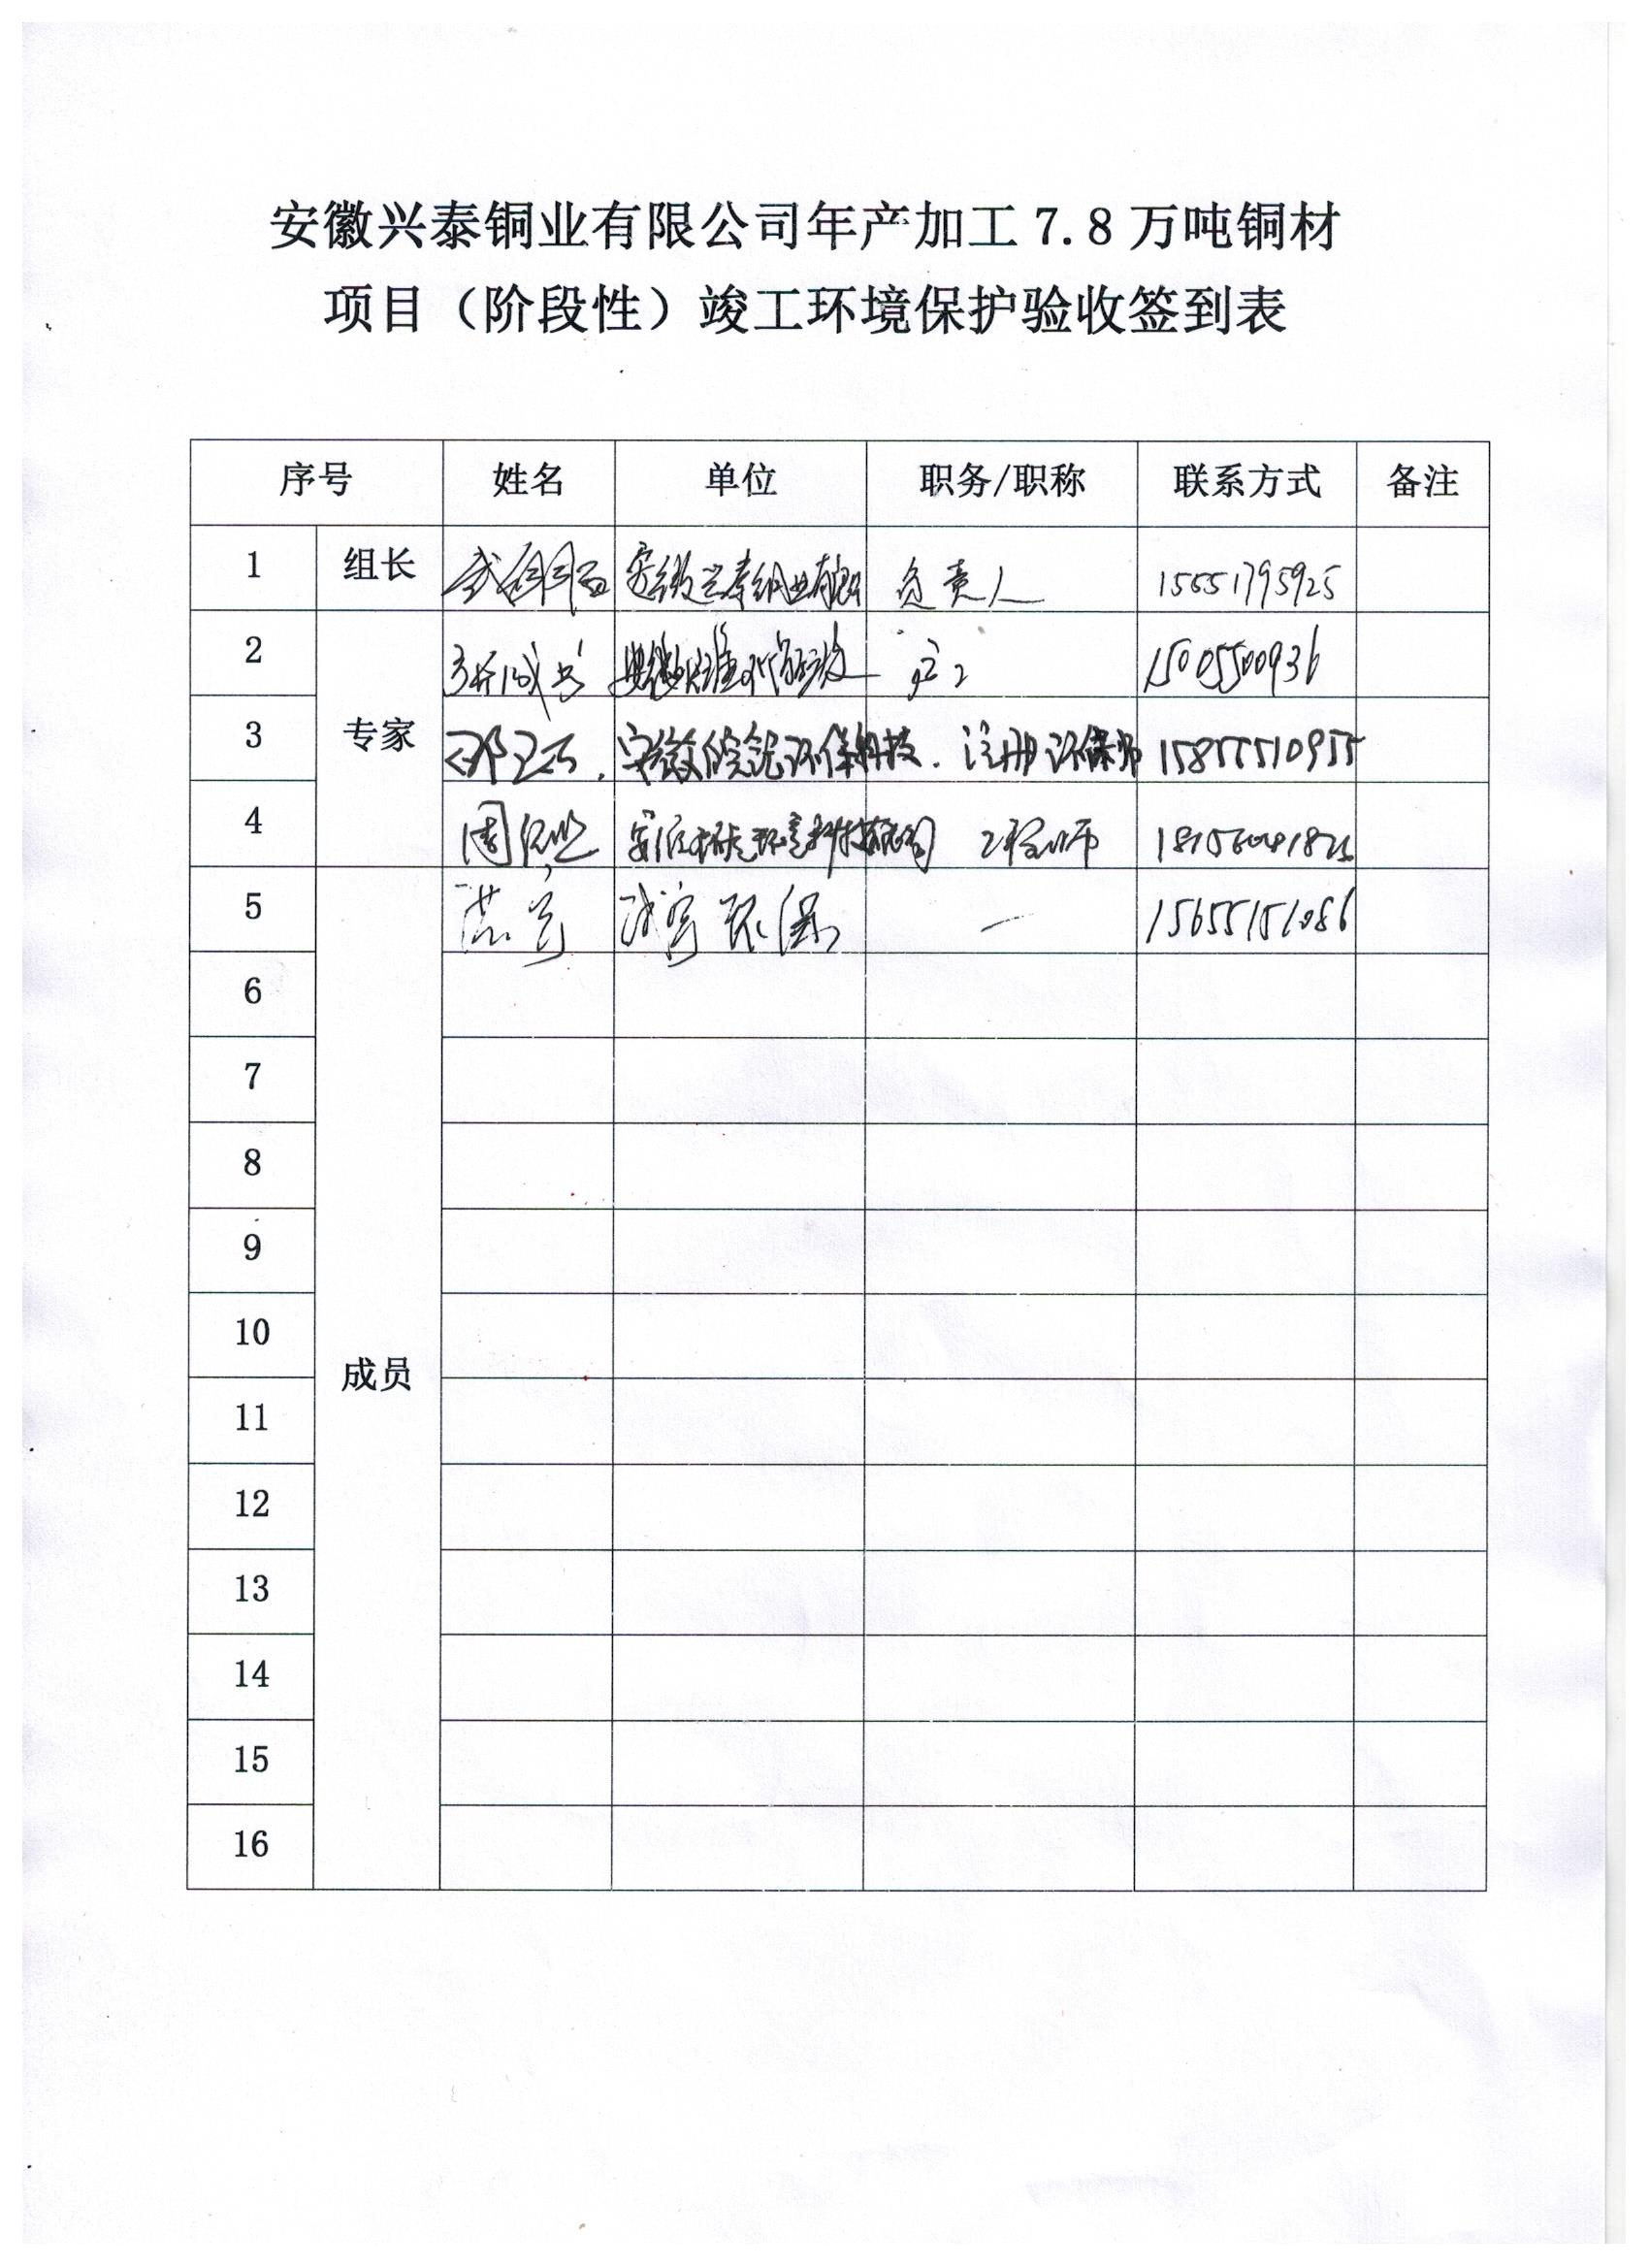 安徽兴泰铜业有限公司年产加工7.8万吨铜材
项目（阶段性）竣工环境保护验收签到表
序号 姓名 单位 职务/职称 联系方式 备注
1 组长 安徽兴泰铜业有限公司 负责人 15551795925
2 高工 15005500936
专家
3 邓 安徽皖欣环保科技 注册环保师 15855510955
4 周 工程师
5 洪 环保 — 15655151086
6
7
8
9
10
成员
11
12
13
14
15
16